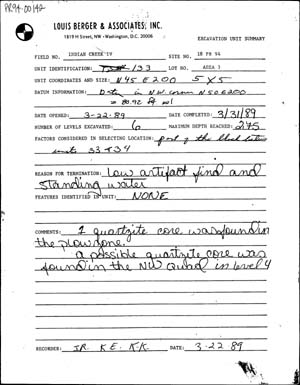 PR94-00142
LOUIS BERGER & ASSOCIATES, INC.
1819 H Street, NW · Washington, D.C. 20006
EXCAVATION UNIT SUMMARY
FIELD NO. INDIAN CREEK IV SITE NO. 18 PR 94
UNIT IDENTIFICATION: 133 LOT NO. AREA 3
UNIT COORDINATES AND SIZE: N45 E200 5 X 5
DATUM INFORMATION: in NW corner N50E200
= 80.92 ft
DATE OPENED: 3-22-89 DATE COMPLETED: 3/31/89
NUMBER OF LEVELS EXCAVATED: 6 MAXIMUM DEPTH REACHED: 2.75
FACTORS CONSIDERED IN SELECTING LOCATION: part of the block
units 33 & 34
REASON FOR TERMINATION: Low artifact find and
standing water
FEATURES IDENTIFIED IN UNIT: NONE
COMMENTS: 1 quartzite core was found in
the plowzone.
a possible quartzite core was
found in the NW Quad in level 4
RECORDER: K.E. K.K. DATE: 3-22-89